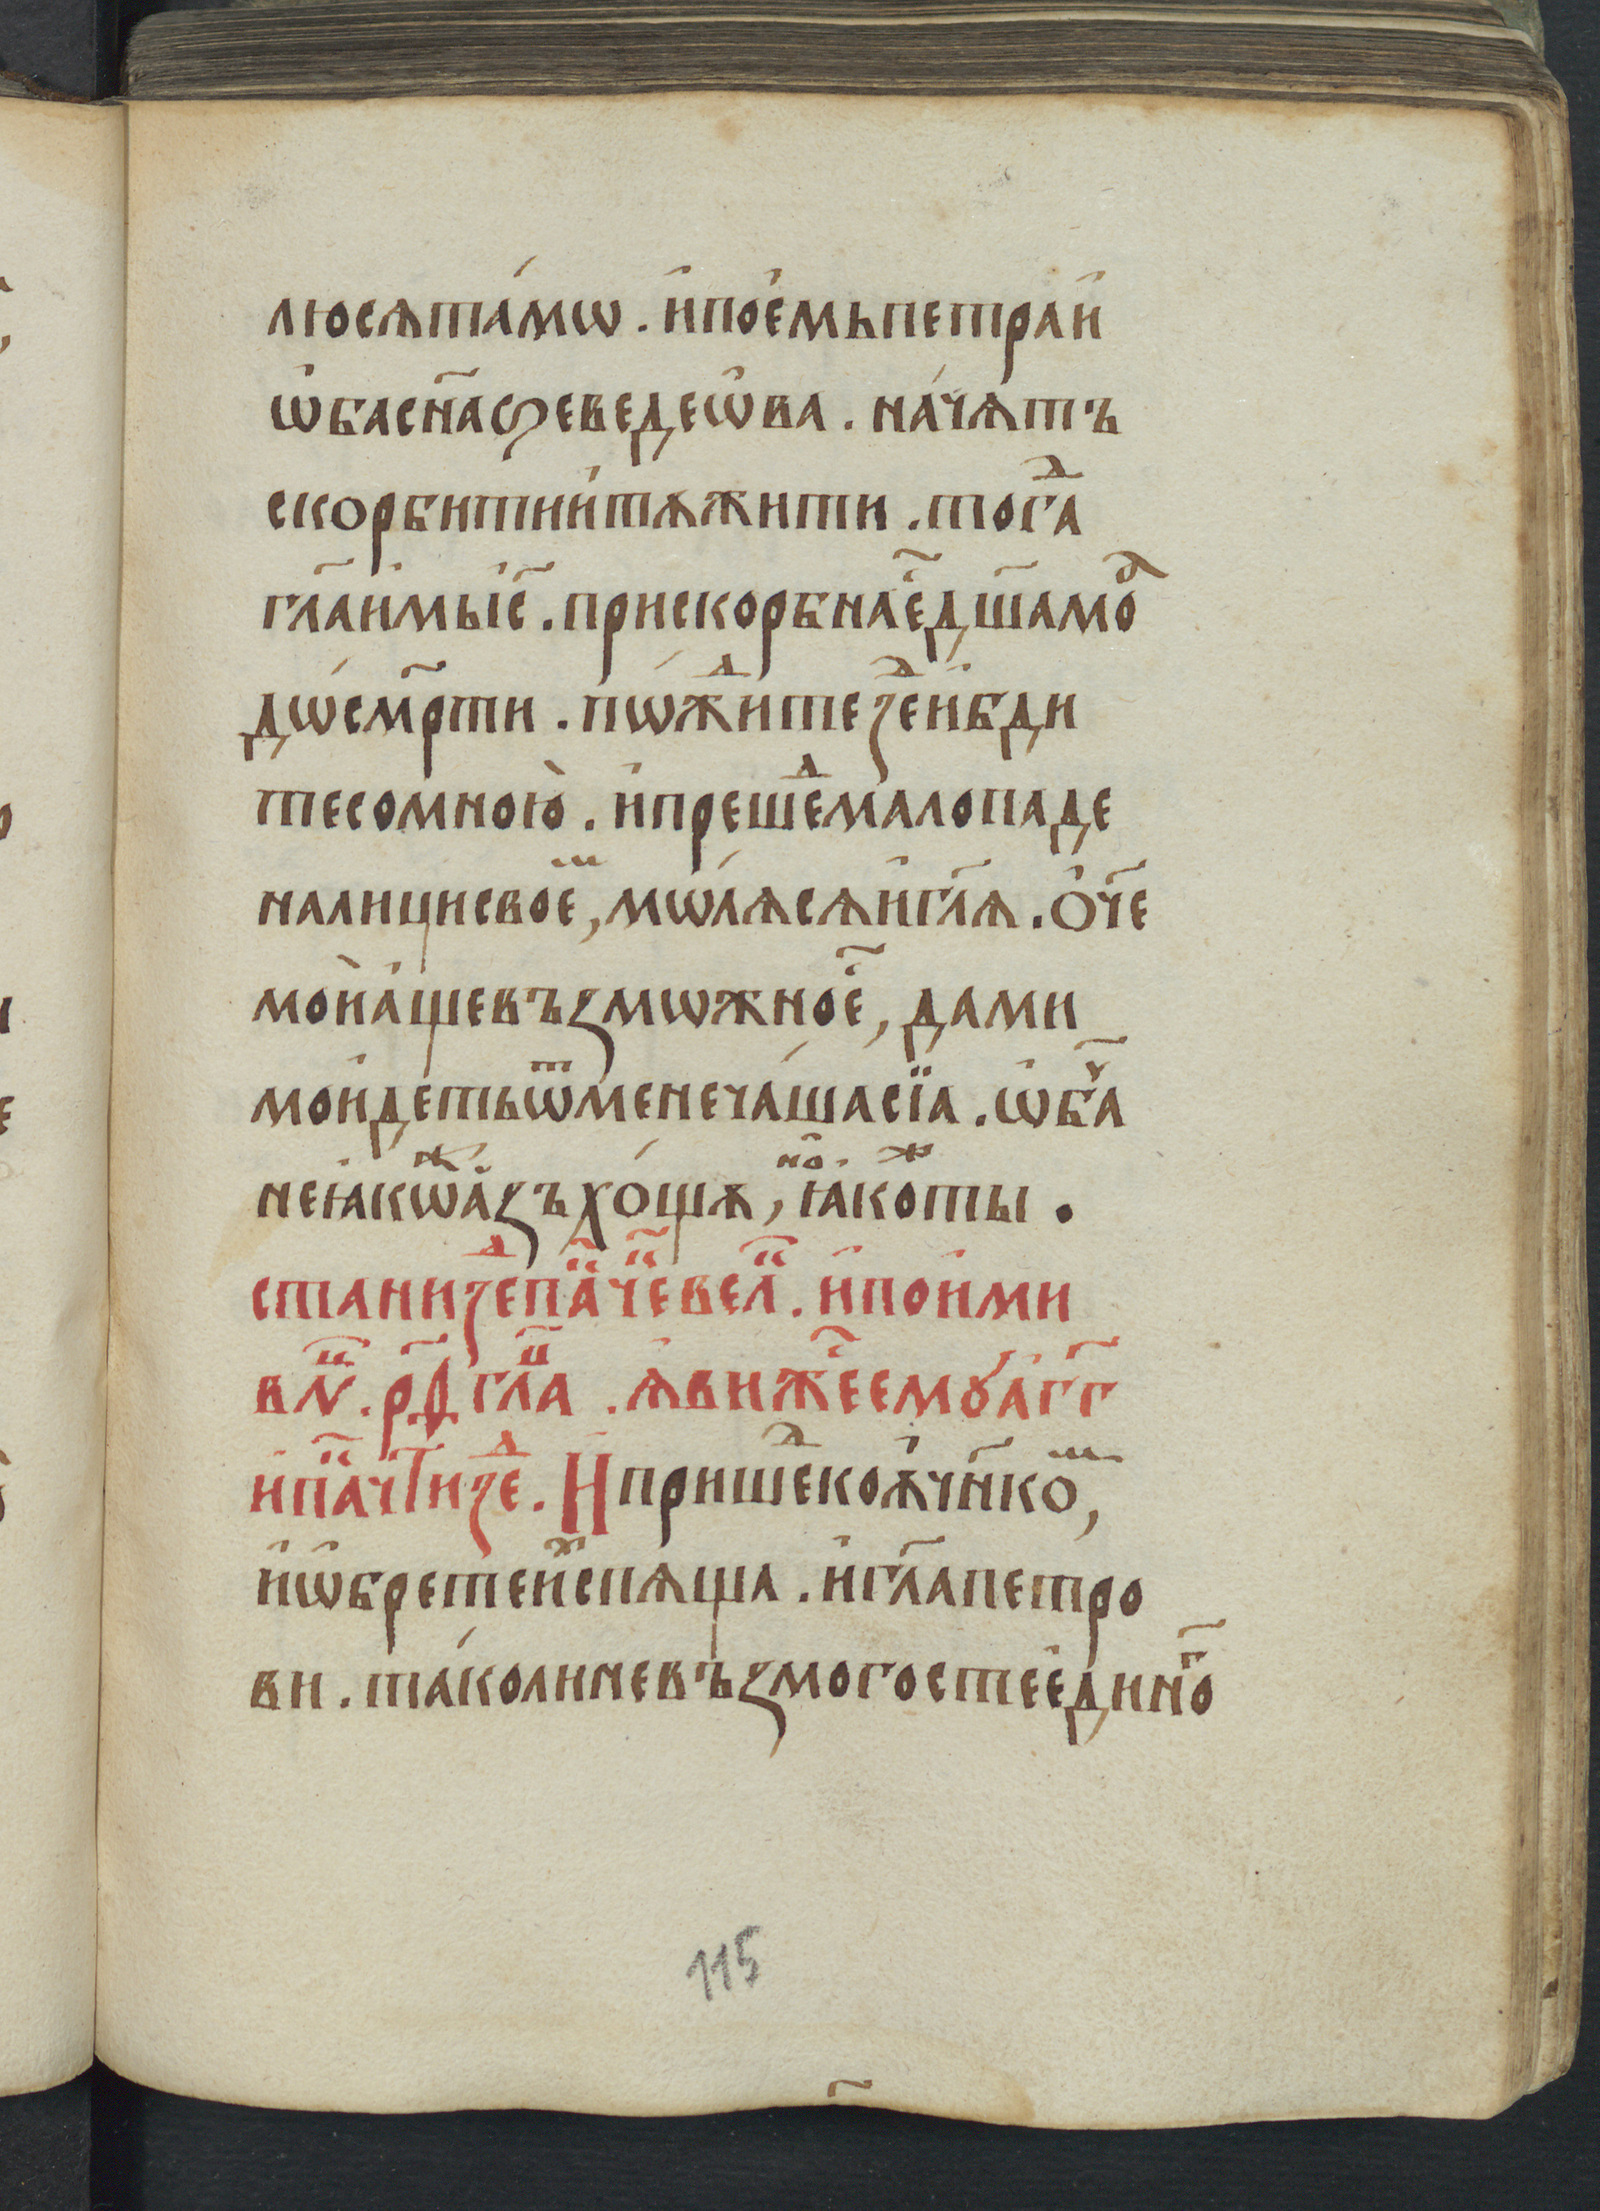 люсѧта́мѡ . и҆пое҆мьпетраи҆
ѡ҆басн҃аѕеведеѡ҆ва . на́чѧтъ
скорбитии҆тѧжити . тогⷣа
гл҃аи҆мыі҆с҃ . прискорбнае҆с҃дш҃амоꙗ҆
дѡ́см҃рти . пѡ́жⷣитезⷣеи҆бди
тесомною̀ . и҆прешеⷣмалопаде
налицисвоеⷨ, мѡ́лѧсѧи҆гл҃ѧ . о҆ч҃е
мо̀иа҆щевъꙁмѡжное҆с҃, дами
моидетьѿменеча́шасїа . ѡ҆ба҃ч
неꙗ҆кѡⷤа҆ꙁъхо́щѧ, но҆ꙗ҆коⷤты .
станизⷣепа҃че҃вел҃ . и҆поими
вн҃ . р҃д гл҃а . ꙗ҆вижес҃емꙋ́а҆гг҃
и҆па҃чт҃изⷣе . И҆пришеⷣкоѹ҆ч҃нкоⷨ,
и҆ѡ҆бретеиⷯ҆спѧща . и҆гл҃апетро
ви . та́колиневъꙁмогостее҆динг҃о
115